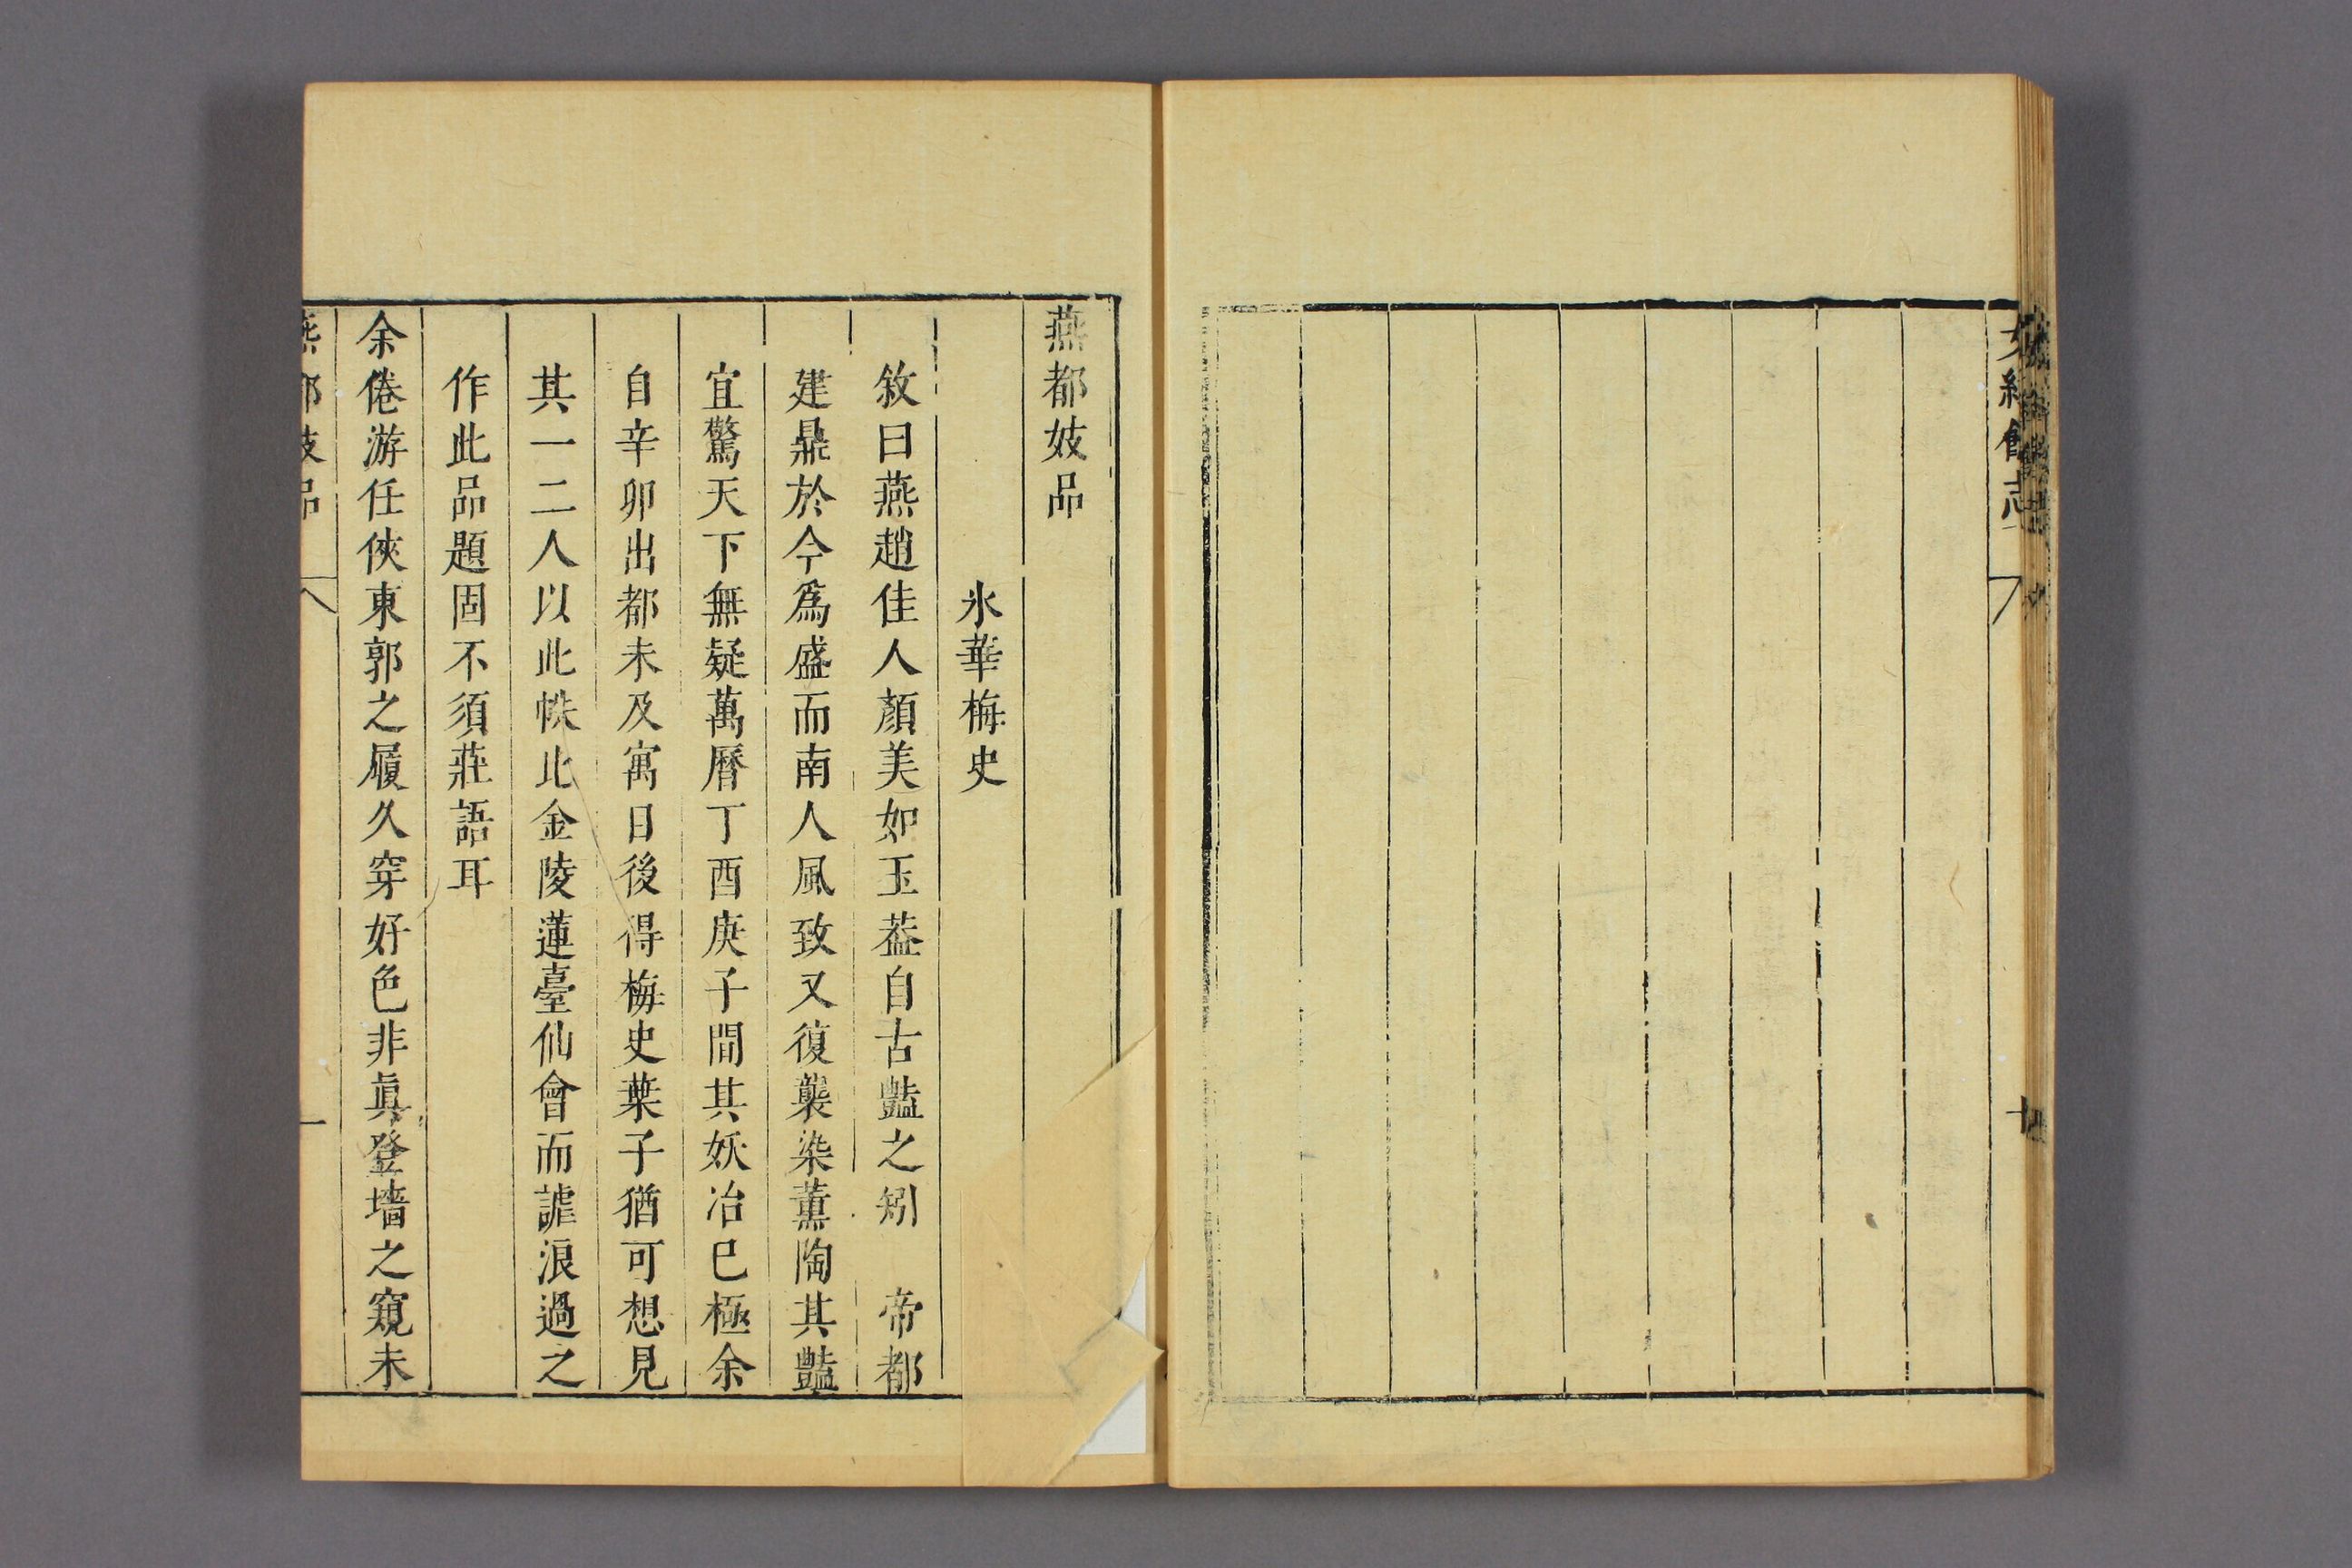 燕都妓品
氷華梅史
敘曰燕趙佳人顏美如玉葢自古豔之矧　帝都
建鼎於今爲盛而南人風致又復襲染薰陶其豔
宜驚天下無疑萬曆丁酉庚子間其妖冶已極余
自辛卯出都未及寓目後得梅史葉子猶可想見
其一二人以此帙比金陵蓮臺仙會而謔浪過之
作此品題固不須莊語耳
余倦游任俠東郭之履久穿好色非眞登墻之窺未
燕都妓品
一